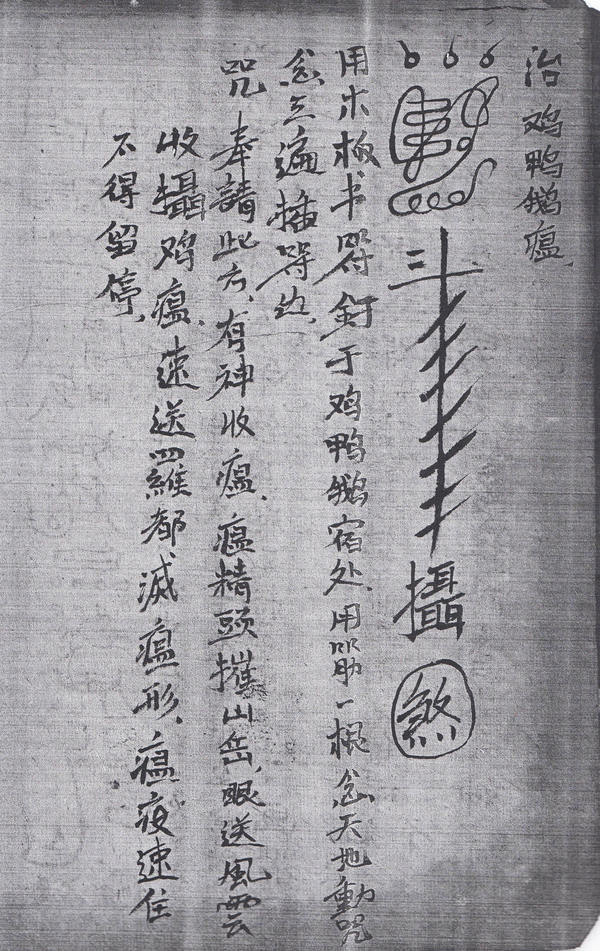 治鸡鸭鹅瘟、
攝煞
用木板书符釘于鸡鸭鹅宿处、用筯一棍念天地動咒
念三遍插符边、
咒奉請此方、有神收瘟、瘟精頭山岳、眼送風雲
收攝鸡瘟、速送羅都、滅瘟形、瘟疫速住
不得留停、